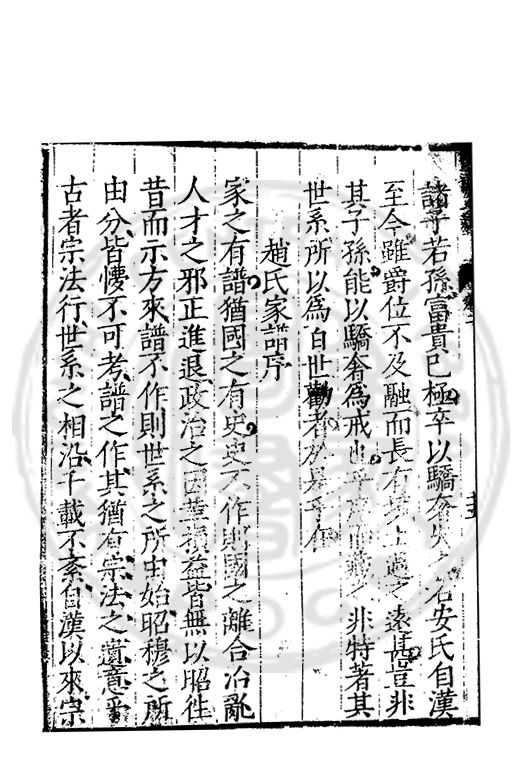 諸子若孫富貴已極卒以驕奢失之若安氏自漢
至今雖爵位不及融而長有其上過之遠甚豈非
其子孫能以驕奢為戒也予序而藏之非特著其
世系所以為百世勸者於是乎在
趙氏家譜序
家之有譜猶國之有史史不作則國之離合治亂
人才之邪正進退政治之因革損益皆無以昭徃
昔而示方來譜不作則世系之所由始昭穆之所
由分皆懵不可考譜之作其猶有宗法之遺意乎
古者宗法行世系之相沿千載不紊自漢以來宗